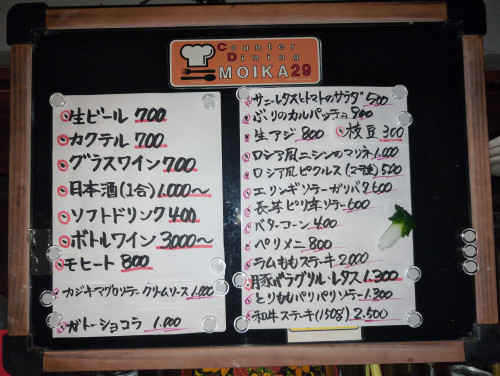 Counter
Dining
MOIKA29
生ビール 700
カクテル 700
グラスワイン 700
日本酒(1合) 1.000〜
ソフトドリンク 400
ボトルワイン 3000〜
モヒート 800
カジキマグロソテー クリームソース 1.000
ガトーショコラ 1.000
サニーレタスとトマトのサラダ 500
ぶりのカルパッチョ 900
生アジ 800 枝豆 300
ロシア風ニシンのマリネ 1.000
ロシア風ピクルス(2種) 500
エリンギソテーガリバタ 600
長芋ピリ辛ソテー 600
バターコーン 400
ペリメニ 800
ラムももステーキ 2.000
豚バラグリル・レタス 1.300
とりももパリパリソテー 1.300
和牛ステーキ(150g) 2.500